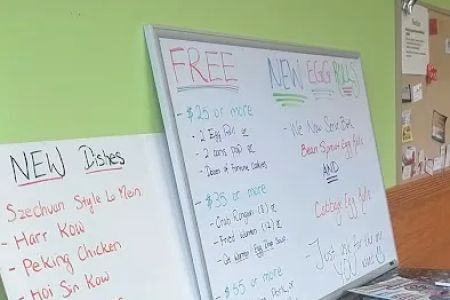 NEW Dishes
Szechuan Style Lo Mein
- Harr Kow
- Peking Chicken
- Hoi Sin Kow
FREE
- $25 or more
• 2 Egg Roll or
• 2 cans pop or
• Dozen of Fortune Cookies
- $35 or more
- Crab Rangoon (8) or
- Fried Wonton (12) or
- Qt Wonton Egg Drop Soup
- $55 or more
Pork or
NEW EGG ROLLS
- We Now Serve Both
Bean Sprout Egg Rolls
AND
Cabbage Egg Rolls
- Just ask for the one
you want!